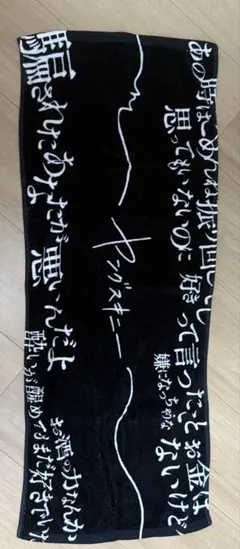 あの時はごめんね振り回しても
思ってもいないのに 好きって言ったとお金は
嫌になっちゃうな ないけど
ヤングスキニー
騙されたあなたが悪いんだよ
お酒の力なんか
酔いが醒めてもまだ好きでいて